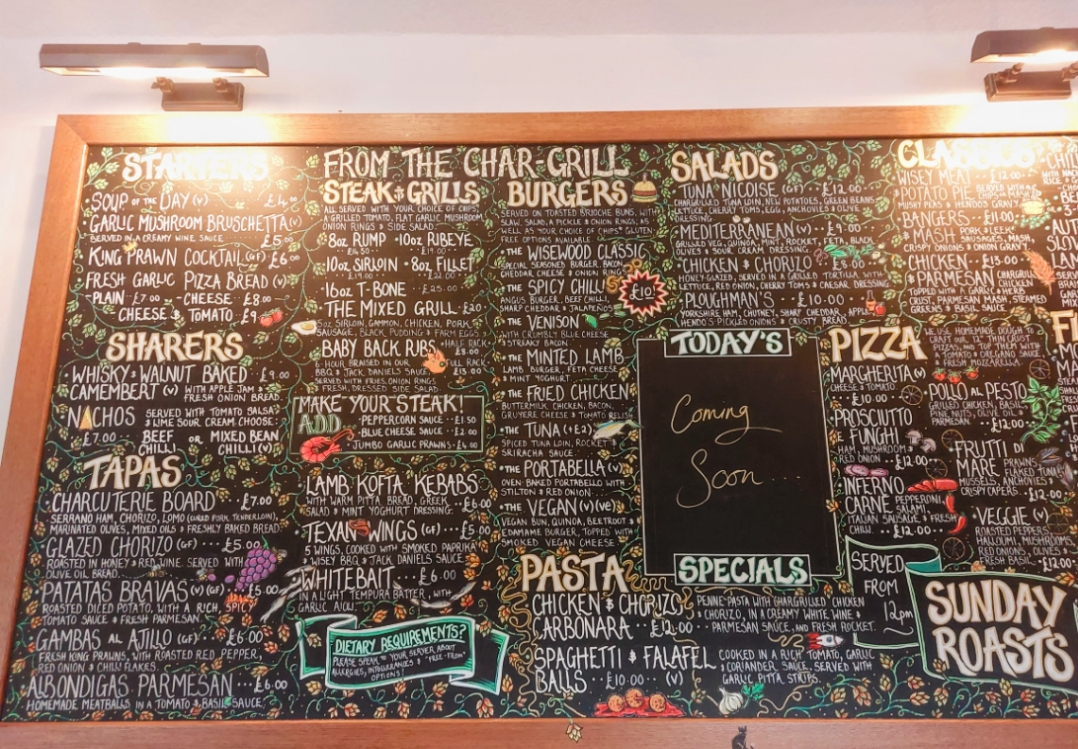 STARTERS
SOUP OF THE DAY (V)
GARLIC MUSHROOM BRUSCHETTA (V)
SERVED IN A CREAMY WINE SAUCE £5.00
KING PRAWN COCKTAIL (GF) £6.00
FRESH GARLIC PIZZA BREAD (V)
-PLAIN £7.00 -CHEESE £8.00
CHEESE & TOMATO £9
SHARERS
WHISKY & WALNUT BAKED £9.00
CAMEMBERT (V) WITH APPLE JAM &
FRESH ONION BREAD
NACHOS SERVED WITH TOMATO SALSA
& LIME SOUR CREAM. CHOOSE:
£7.00 BEEF CHILLI OR MIXED BEAN CHILLI (V)
TAPAS
CHARCUTERIE BOARD £7.00
SERRANO HAM, CHORIZO, LOMO (CURED PORK TENDERLOIN),
MARINATED OLIVES, MIXED OILS & FRESHLY BAKED BREAD
GLAZED CHORIZO (GF) £5.00
ROASTED IN HONEY & RED WINE. SERVED WITH
OLIVE OIL BREAD.
PATATAS BRAVAS (V)(GF) £5.00
ROASTED DICED POTATO, WITH A RICH, SPICY
TOMATO SAUCE & FRESH PARMESAN
GAMBAS AL AJILLO (GF) £6.00
FRESH KING PRAWNS, WITH ROASTED RED PEPPER,
RED ONION & CHILLI FLAKES.
ALBONDIGAS PARMESAN £6.00
HOMEMADE MEATBALLS IN A TOMATO & BASIL SAUCE
FROM THE CHAR-GRILL
STEAK & GRILLS
ALL SERVED WITH YOUR CHOICE OF CHIPS,
A GRILLED TOMATO, FLAT GARLIC MUSHROOM,
ONION RINGS & SIDE SALAD
8oz RUMP 10oz RIBEYE
10oz SIRLOIN 8oz FILLET
16oz T-BONE £25.00
THE MIXED GRILL £20
5oz SIRLOIN, GAMMON, CHICKEN, PORK
SAUSAGE, BLACK PUDDING & FARM EGGS
BABY BACK RIBS HALF RACK £8.00
6-HOUR BRAISED IN OUR FULL RACK
BBQ & JACK DANIELS SAUCE £15.00
SERVED WITH FRIES, ONION RINGS
& FRESH, DRESSED SIDE SALAD
MAKE YOUR STEAK!
ADD PEPPERCORN SAUCE £1.50
BLUE CHEESE SAUCE £2.00
JUMBO GARLIC PRAWNS £4.00
LAMB KOFTA KEBABS
WITH WARM PITTA BREAD, GREEK
SALAD & MINT YOGHURT DRESSING. £6.00
TEXAN WINGS (GF) £5.00
5 WINGS, COOKED WITH SMOKED PAPRIKA
& WISEY BBQ & JACK DANIELS SAUCE.
WHITEBAIT £6.00
IN A LIGHT TEMPURA BATTER, WITH
GARLIC AIOLI
DIETARY REQUIREMENTS?
PLEASE SPEAK TO YOUR SERVER ABOUT
ALLERGIES, INTOLERANCES & "FREE-FROM"
OPTIONS!
BURGERS
SERVED ON TOASTED BRIOCHE BUNS, WITH
SLAW, SALAD & PICKLE & ONION RINGS, AS
WELL AS YOUR CHOICE OF CHIPS* GLUTEN
FREE OPTIONS AVAILABLE
THE WISEWOOD CLASSIC
SEASONED BURGER, BACON,
CHEDDAR CHEESE & ONION RING
THE SPICY CHILLI
ANGUS BURGER, BEEF CHILLI,
SHARP CHEDDAR & JALAPENOS
£10!
THE VENISON
WITH CRUMBLY BLUE CHEESE
& STREAKY BACON
THE MINTED LAMB
LAMB BURGER, FETA CHEESE
& MINT YOGHURT
THE FRIED CHICKEN
BUTTERMILK CHICKEN, BACON,
GRUYERE CHEESE & TOMATO RELISH
THE TUNA (+£2)
SPICED TUNA LOIN, ROCKET &
SRIRACHA SAUCE
THE PORTABELLA (V)
OVEN BAKED PORTABELLO WITH
STILTON & RED ONION
THE VEGAN (V)(VE)
VEGAN BUN, QUINOA, BEETROOT &
EDAMAME BURGER, TOPPED WITH
SMOKED VEGAN CHEESE
PASTA
CHICKEN & CHORIZO
ARBONARA £12.00
PENNE PASTA WITH CHARGRILLED CHICKEN
& CHORIZO, IN A CREAMY WHITE WINE &
PARMESAN SAUCE, AND FRESH ROCKET
SPAGHETTI & FALAFEL
BALLS £10.00 (V)
COOKED IN A RICH TOMATO, GARLIC
& CORIANDER SAUCE. SERVED WITH
GARLIC PITTA STRIPS.
SALADS
TUNA NICOISE (GF) £12.00
CHARGRILLED TUNA LOIN, NEW POTATOES, GREEN BEANS,
LETTUCE, CHERRY TOMS, EGG, ANCHOVIES & OLIVE
DRESSING
MEDITERRANEAN (V) £9.00
GRILLED VEG, QUINOA, MINT, ROCKET, FETA, BLACK
OLIVES & SOUR CREAM DRESSING
CHICKEN & CHORIZO £8.00
HONEY GLAZED, SERVED IN A GRILLED TORTILLA, WITH
LETTUCE, RED ONION, CHERRY TOMS & CAESAR DRESSING
PLOUGHMAN'S £10.00
YORKSHIRE HAM, CHUTNEY, SHARP CHEDDAR, APPLE,
HENDO'S PICKLED ONIONS & CRUSTY BREAD
TODAY'S
Coming
Soon....
SPECIALS
CLASSICS
WISEY MEAT £12.00
& POTATO PIE SERVED WITH
MUSHY PEAS & HENDO'S GRAVY
BANGERS £11.00
& MASH PORK & LEEK
SAUSAGES, MASH,
CRISPY ONIONS & ONION GRAVY
CHICKEN £13.00
PARMESAN CHARGRILLED
TOPPED WITH A GARLIC & HERB
CRUST, PARMESAN MASH, STEAMED
GREENS & BASIL SAUCE
PIZZA
WE USE HOMEMADE DOUGH TO
CRAFT OUR 12" THIN CRUST
PIZZAS, AND TOP THEM WITH
A TOMATO & OREGANO SAUCE
& FRESH MOZZARELLA
MARGHERITA (V)
CHEESE & TOMATO
£10.00
PROSCIUTTO
FUNGHI
HAM, MUSHROOM &
RED ONION £12.00
INFERNO
CARNE PEPPERONI,
SALAMI,
ITALIAN SAUSAGE & FRESH
CHILLI £12.00
POLLO AL PESTO
GRILLED CHICKEN, BASIL,
PINE NUTS, OLIVE OIL &
PARMESAN £12.00
FRUTTI DI
MARE PRAWNS,
FLAKED TUNA,
MUSSELS, ANCHOVIES &
CRISPY CAPERS £12.00
VEGGIE (V)
ROASTED PEPPERS,
HALLOUMI, MUSHROOMS,
RED ONIONS, OLIVES &
FRESH BASIL £12.00
SERVED
FROM
12pm
SUNDAY
ROASTS